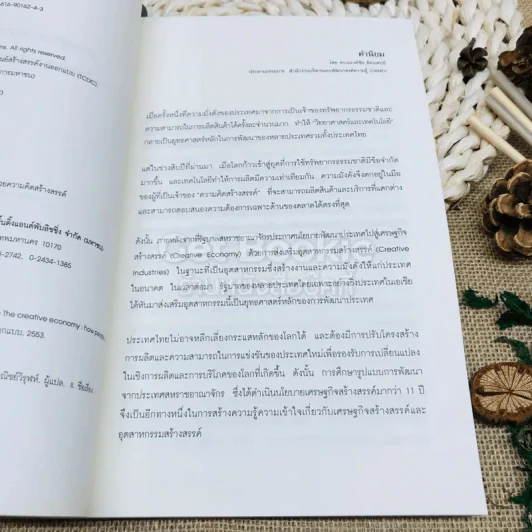 616-90162-4-3
ns. All rights reserved.
นย์สร้างสรรค์งานออกแบบ (TCDC)
การมหาชน)
วยความคิดสร้างสรรค์
ริ้นติ้งแอนด์พับลิชชิ่ง จำกัด
เทพมหานคร 10170
-2742, 0-2434-1385
The creative economy : how people
อกแบบ, 2553.
ณิชย์วิรุฬห์, ผู้แปล. II. ชื่อเรื่อง
คำนิยม
เมื่อครั้งหนึ่งที่ความมั่งคั่งของประเทศมาจากการเป็นเจ้าของทรัพยากรธรรมชาติและ
ความสามารถในการผลิตสินค้าได้ครั้งละจำนวนมาก ทำให้ "วิทยาศาสตร์และเทคโนโลยี"
กลายเป็นยุทธศาสตร์หลักในการพัฒนาของหลายประเทศรวมทั้งประเทศไทย
แต่ในช่วงสิบปีที่ผ่านมา เมื่อโลกก้าวเข้าสู่ยุคที่การใช้ทรัพยากรธรรมชาติมีข้อจำกัด
มากขึ้น และเทคโนโลยีทำให้การผลิตมีความเท่าเทียมกัน ความมั่งคั่งจึงตกอยู่ในมือ
ของผู้ที่เป็นเจ้าของ "ความคิดสร้างสรรค์" ที่จะสามารถผลิตสินค้าและบริการที่แตกต่าง
และสามารถตอบสนองความต้องการเฉพาะด้านของตลาดได้ตรงที่สุด
ดังนั้น ภายหลังจากที่รัฐบาลสหราชอาณาจักรประกาศนโยบายพัฒนาประเทศไปสู่เศรษฐกิจ
สร้างสรรค์ (Creative Economy) ด้วยการส่งเสริมอุตสาหกรรมสร้างสรรค์ (Creative
Industries) ในฐานะที่เป็นอุตสาหกรรมซึ่งสร้างงานและความมั่งคั่งให้แก่ประเทศ
ในอนาคต ในเวลาต่อมา รัฐบาลของหลายประเทศโดยเฉพาะอย่างยิ่งประเทศในเอเชีย
ได้หันมาส่งเสริมอุตสาหกรรมนี้เป็นยุทธศาสตร์หลักของการพัฒนาประเทศ
ประเทศไทยไม่อาจหลีกเลี่ยงกระแสหลักของโลกได้ และต้องมีการปรับโครงสร้าง
การผลิตและความสามารถในการแข่งขันของประเทศใหม่เพื่อรองรับการเปลี่ยนแปลง
ในเชิงการผลิตและการบริโภคของโลกที่เกิดขึ้น ดังนั้น การศึกษารูปแบบการพัฒนา
จากประเทศสหราชอาณาจักร ซึ่งได้ดำเนินนโยบายเศรษฐกิจสร้างสรรค์มากว่า 11 ปี
จึงเป็นอีกทางหนึ่งในการสร้างความรู้ความเข้าใจเกี่ยวกับเศรษฐกิจสร้างสรรค์และ
อุตสาหกรรมสร้างสรรค์